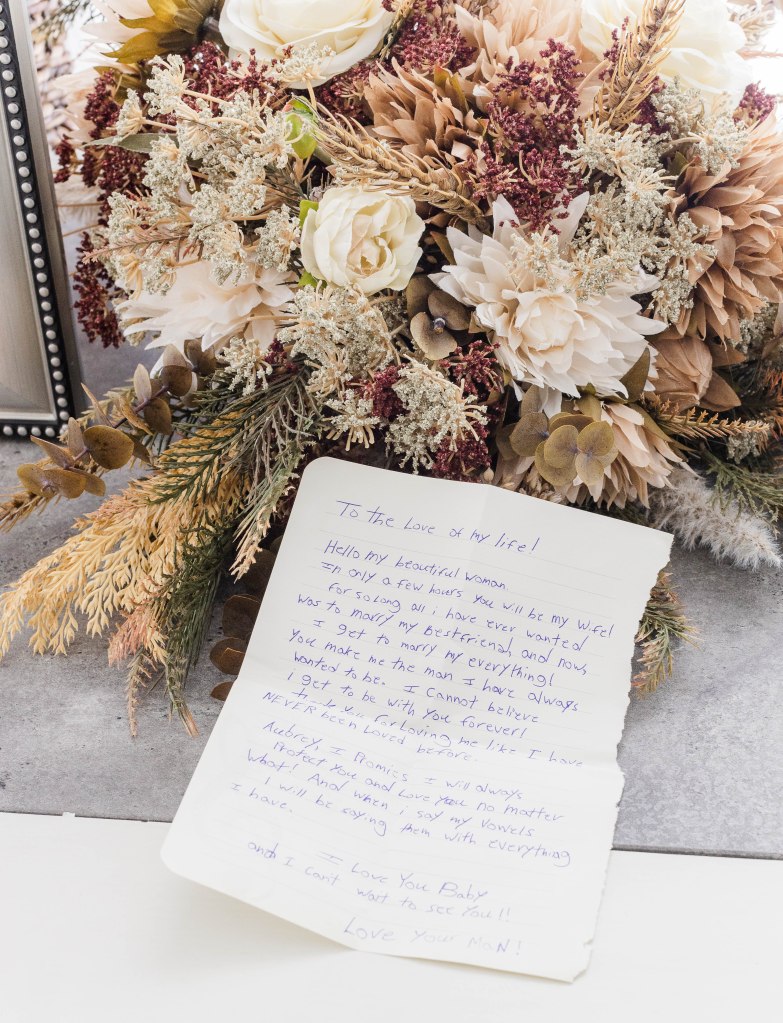 To the Love of my life!
Hello my beautiful woman.
In only a few hours you will be my wife!
For so long all i have ever wanted
was to marry my bestfriend, and now,
I get to marry my everything!
You make me the man I have always
wanted to be. I cannot believe
I get to be with you forever!
thank you for Loving me like I have
NEVER been Loved before.
Aubrey, I Promies I will always
Protect You and Love You no matter
what! And when i say my Vowels
I will be saying them with everything
I have.
I Love You Baby
and I can't wait to see You!!
Love Your MaN!